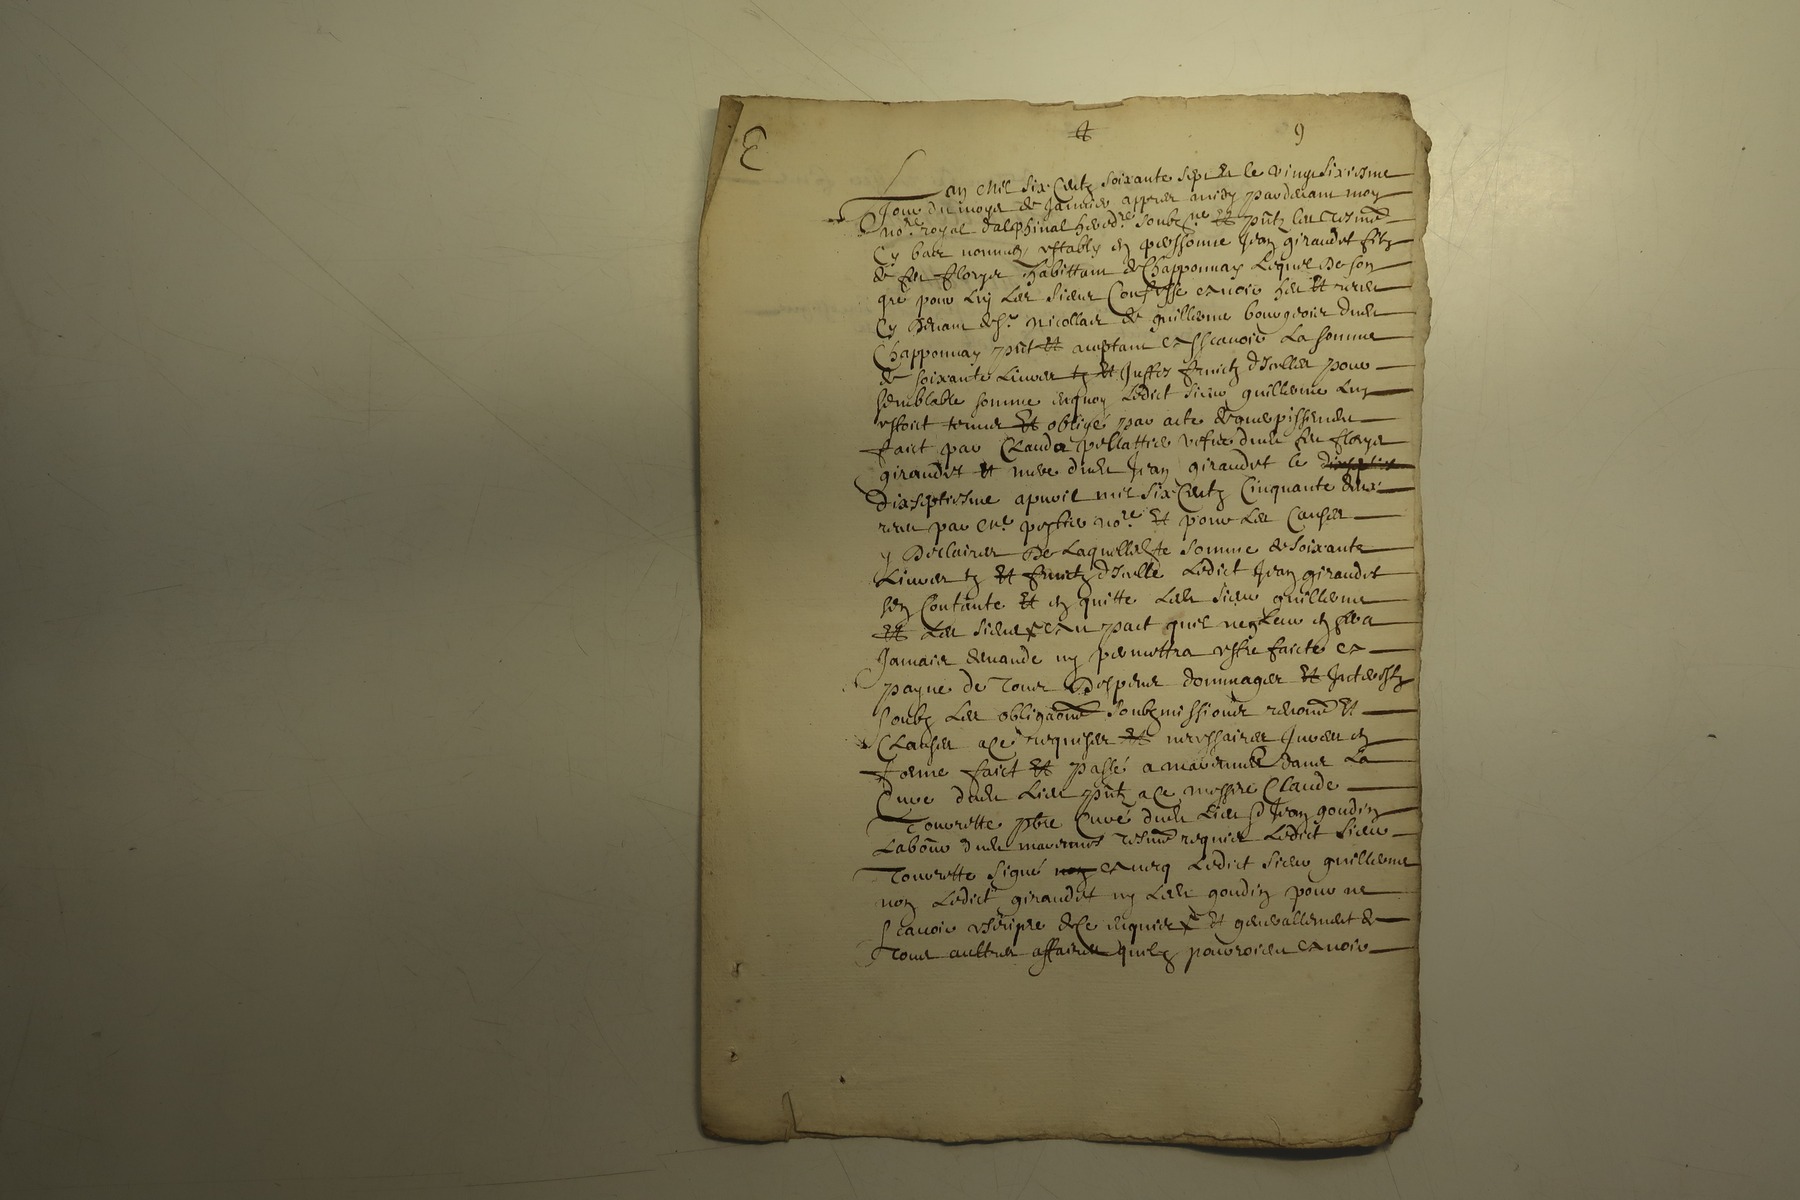 E
9
Lan Mil six Centz soixante sept et le vingt sixiesme
Jour du moys de Janvier appres midy pardevant moy
no.re royal dalphinal hered.re soubz.ne et p̄ntz les tesmō
Cy bas nommes estably en personne Jean giraudet filz
de feu floryes habittant de Chapponnay lequel de son
gré pour luy les sieurs Confesse avoir heu et receu
Cy devant de s.r Nicollas de guillerme bourgeois dud
Chapponnay p̄nt et acceptant assçavoir La somme
de soixante Livres tz et Juffes fruictz d'Icelles pour
semblable somme enquoy Ledict sieur guillerme luy
estoit tenus et obligé par acte de guerpissement
faict par Clauda pellattiere vefve dud feu floryes
giraudet et mere dud Jean giraudet le
dixseptiesme apvril mil six Centz Cinquante deux
receu par M.e no.re et pour les Causes
y desclairees De Laquelle somme de soixante
Livres tz et fruictz d'Icelle Ledict Jean giraudet
sen Contante et en quitte led sieur guillerme
et les siens avec pact quil ne leur en fera
Jamais demande ny permettra estre faicte a
payne de tous despens dommages et Interestz
soubz les obligaōns soubzmissions renonc̄ et
Clauses a ce requises et necessaires Juree en
forme faict et passé a marennes dans La
Cure dud Lieu p̄ntz a ce messire Claude
Tourette pbre Curé dud Lieu et Jean goudin
Labour dud marennes tesmō requis Ledict sieur
Tourette signé avecq Ledict sieur guillerme
non Ledict giraudet ny led goudin pour ne
sçavoir escripre de ce enquis et et generallement de
Tous aultres affaires quilz pourroient avoir